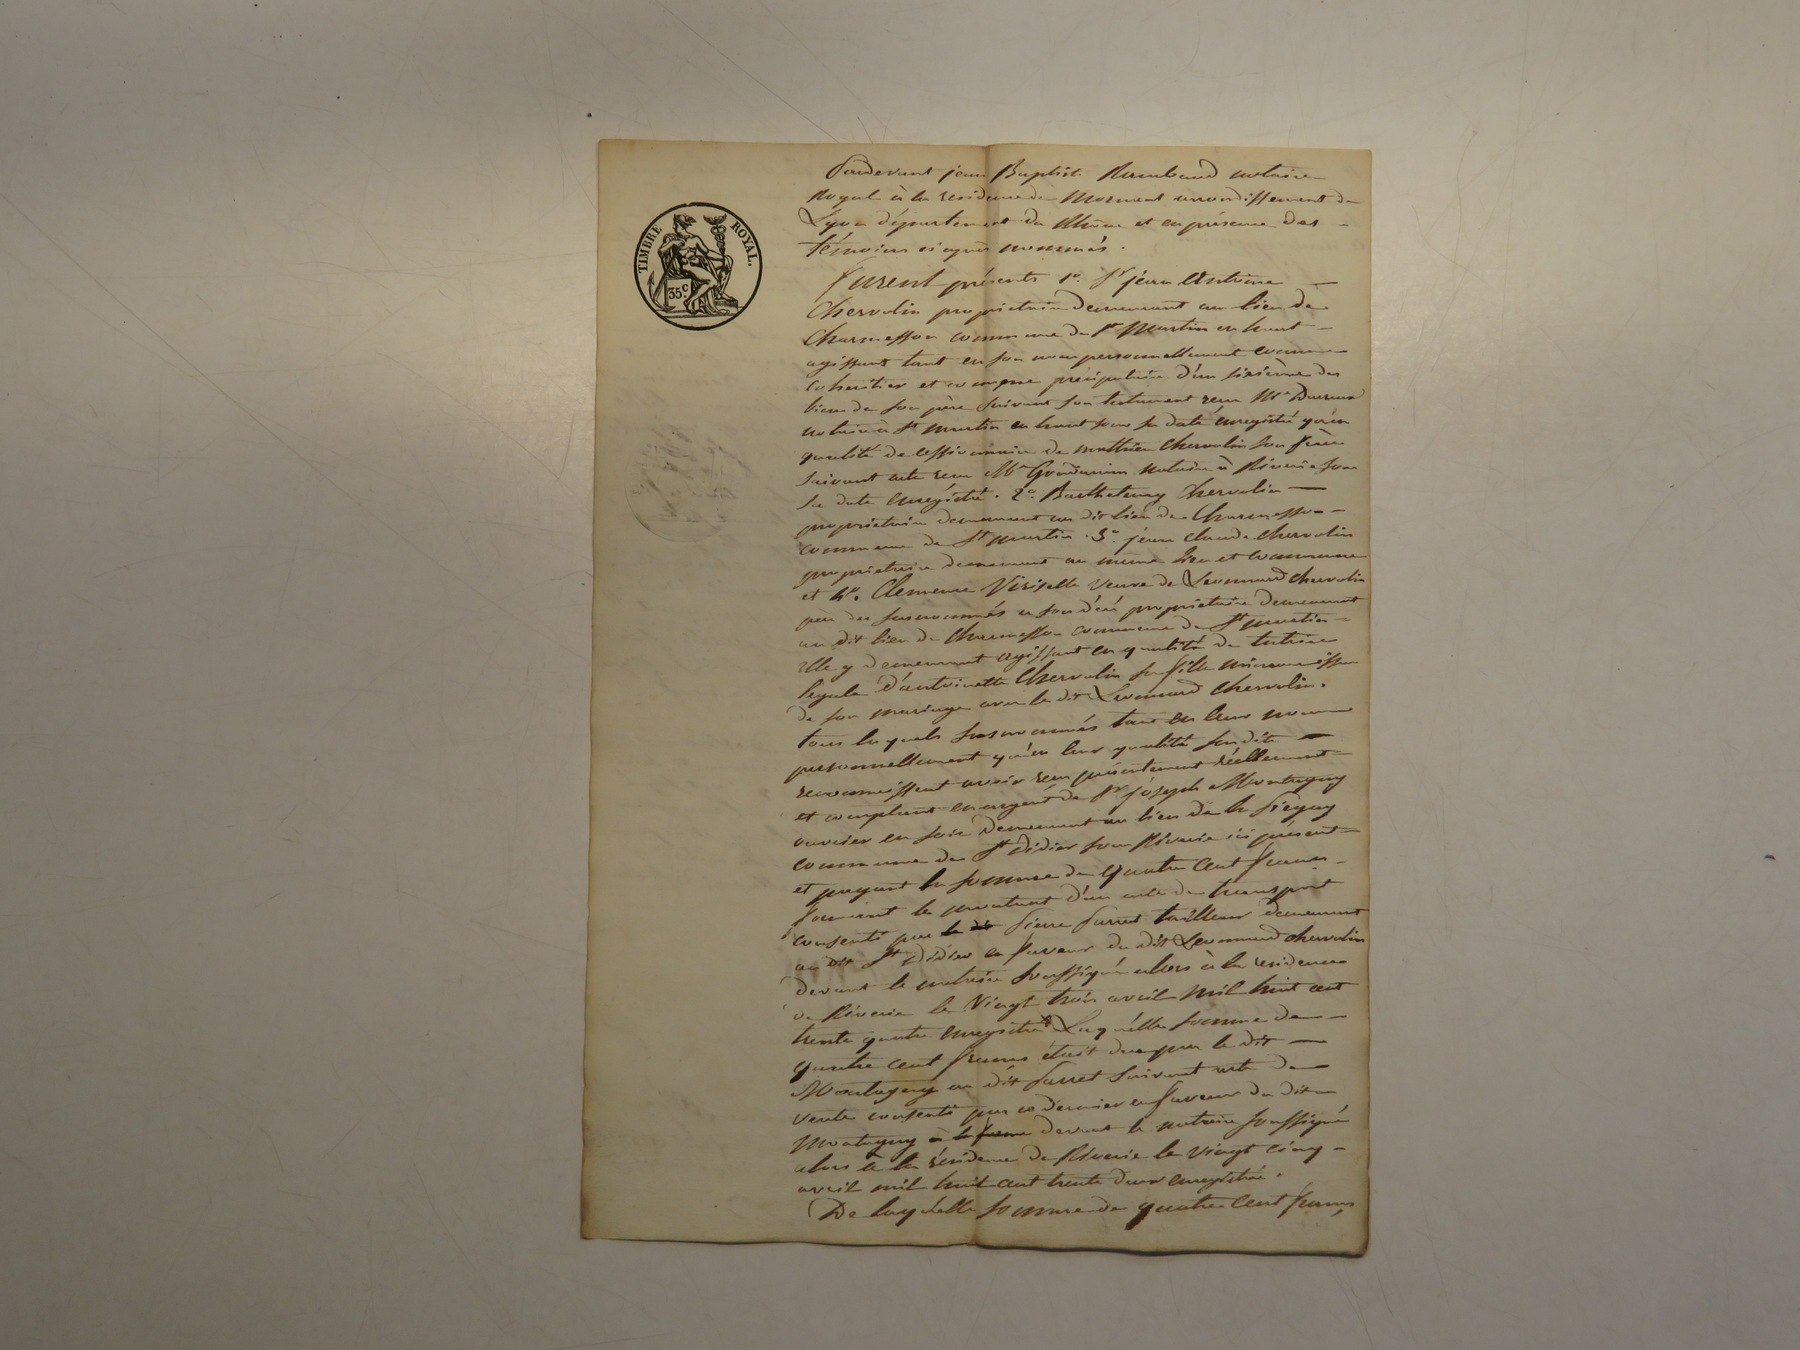 TIMBRE ROYAL.
35 c.
Pardevant jean Baptiste Rambaud notaire
Royal à la residence de Mornant arrondissement de
Lyon département du Rhône et en présence des
témoins ci après nommés.
Furent présents 1º. Sr jean Antoine
Chervolin propriétaire demeurant au lieu de
Charmesson commune de St Martin en haut
agissant tant en son nom personnellement comme
cohéritier et comme préciputaire d'un sixième des
biens de son père suivant son testament reçu Me
notaire à St martin en haut sous sa date enregistré qu'en
qualité de cessionnaire de mathieu Chervolin son frère
suivant acte reçu Me notaire à Riverie sous
sa date enregistré. 2º. Barthelemy Chervolin
propriétaire demeurant au dit lieu de Charmesson
commune de St martin. 3º. jean claude chervolin
propriétaire demeurant au même lieu et commune
et 4º. Clemence Viricelle veuve de Leonnard chervolin
père des susnommés et son décé propriétaire demeurant
au dit lieu de Charmesson commune de St martin
elle y demeurant agissant en qualité de tutrice
legale d'antoinette Chervolin sa fille mineure issue
de son mariage avec le dit Leonnard Chervolin.
tous lesquels susnommés tant en leur nom
personnellement qu'en leur qualité susdite
reconnaissent avoir reçu présentement réellement
et comptant en argent de Sr joseph Montagny
ouvrier en soie demeurant au lieu de la
commune de St Didier sous Riverie ici présent
et payant la somme de quatre cent francs
formant le montant d'un acte de transport
consenti par le dit Pierre Parret tailleur demeurant
au dit St Didier en faveur du dit Leonnard chervolin
devant le notaire soussigné alors à la residence
de Riverie le Vingt trois avril mil huit cent
trente quatre enregistré Laquelle somme de
quatre cent francs était due par le dit
Montagny au dit Parret suivant acte de
vente consenti par ce dernier en faveur du dit
Montagny à la forme devant le notaire soussigné
alors à la résidence de Riverie le vingt cinq
avril mil huit cent trente deux enregistré.
De laquelle somme de quatre cent francs